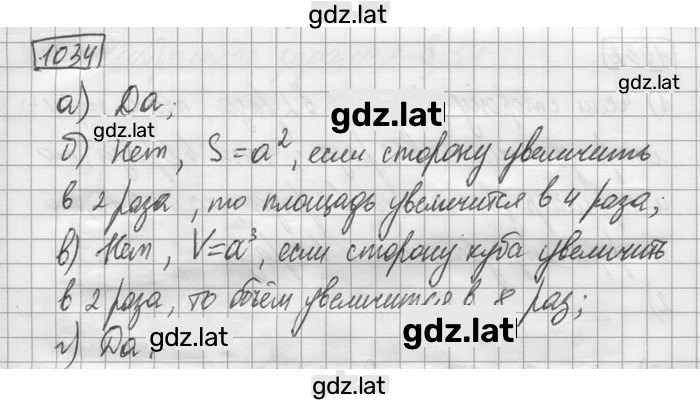 gdz.lat
1034
а) Да;
gdz.lat
gdz.lat
gdz.lat
б) Нет, S=a², если сторону увеличить
в 2 раза, то площадь увеличится в 4 раза;
в) Нет, V=a³, если сторону куба увеличить
в 2 раза, то объём увеличится в 8 раз;
gdz.lat
gdz.lat
г) Да.
gdz.lat
gdz.lat